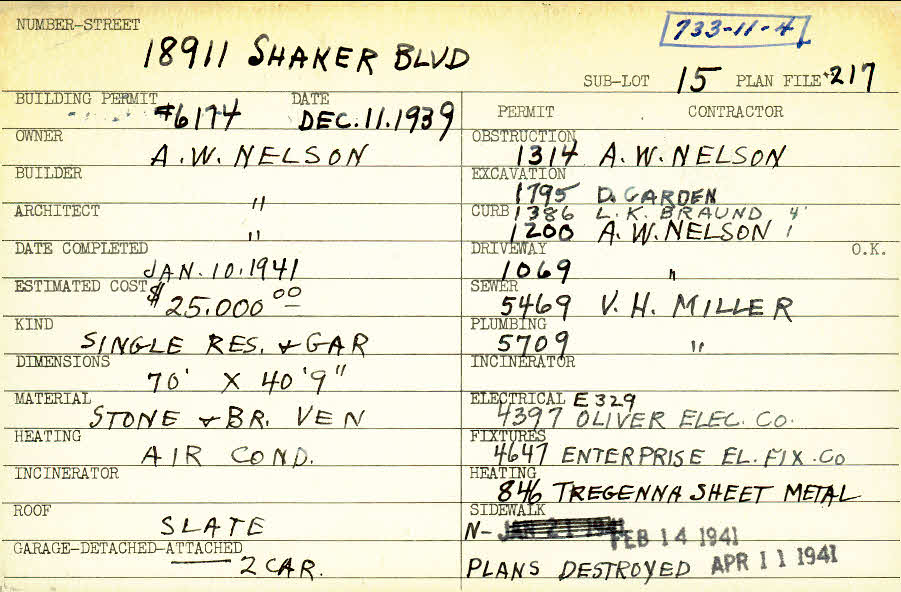 NUMBER-STREET
733-11-4
18911 SHAKER BLVD
SUB-LOT 15 PLAN FILE #217
BUILDING PERMIT #6174 DATE DEC. 11. 1939
PERMIT CONTRACTOR
OWNER A. W. NELSON
OBSTRUCTION 1314 A. W. NELSON
BUILDER "
EXCAVATION 1795 D. GARDEN
ARCHITECT "
CURB 1386 L. K. BRAUND 4'
1200 A. W. NELSON 1
DATE COMPLETED JAN. 10, 1941
DRIVEWAY 1069 " O.K.
ESTIMATED COST $25.000 00
SEWER 5469 V. H. MILLER
KIND SINGLE RES. & GAR
PLUMBING 5709 "
DIMENSIONS 70' X 40'9"
INCINERATOR
MATERIAL STONE & BR. VEN
ELECTRICAL E329
4397 OLIVER ELEC. CO.
HEATING AIR COND.
FIXTURES 4647 ENTERPRISE EL. FIX. CO
INCINERATOR
HEATING 846 TREGENNA SHEET METAL
ROOF SLATE
SIDEWALK
N- JAN 21 1941 FEB 14 1941
GARAGE-DETACHED-ATTACHED 2 CAR.
PLANS DESTROYED APR 11 1941